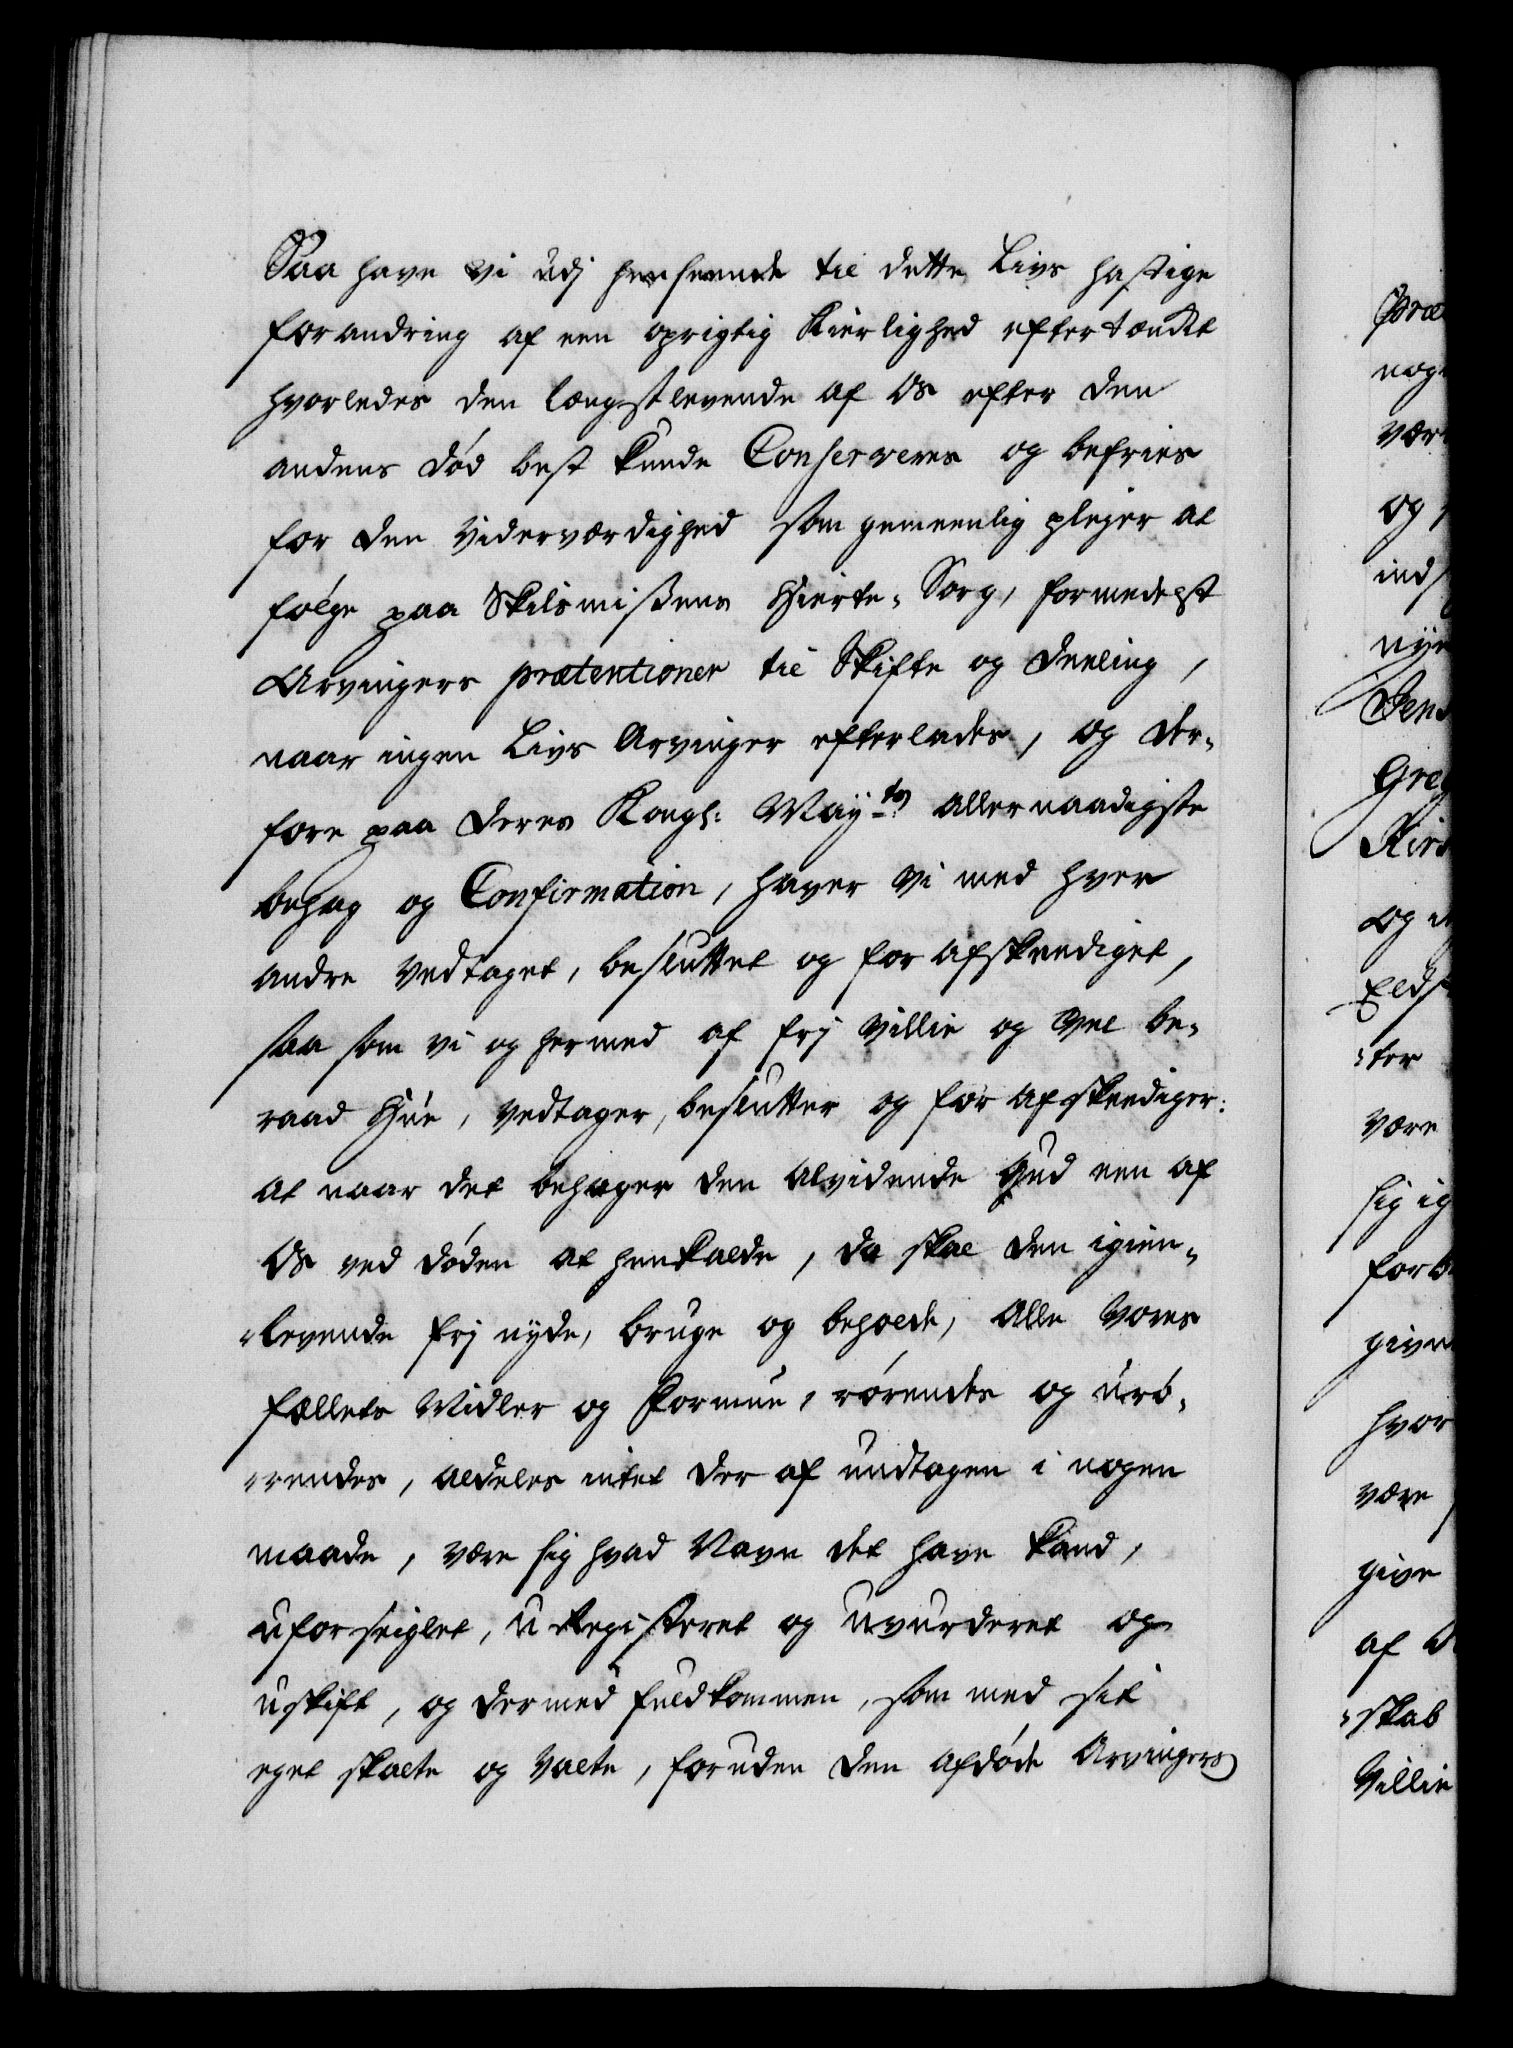 Saa have vi udj henseende til dette Livs hastige
forandring af een oprigtig Kierlighed eftertænckt
hvorledes den længstlevende af Os efter den
andens død best kunde Conserveres og befries
for den Viderværdighed som gemeenlig plejer at
følge paa Skilsmissens Hierte-Sorg, formedelst
Arvingers prætentioner til Skifte og Deeling,
naar ingen Livs Arvinger efterlades, og der-
fore paa Deres Kongl: May:ts Allernaadigste
behag og Confirmation, haver vi med hver
andre Vedtaget, besluttet og for afskeediget,
saa som vi og hermed af frj Villie og Vel be-
raad Hue, vedtager, beslutter og for afskeediger:
At naar det behager den Alvidende Gud een af
Os ved døden at henkalde, da skal den igien-
-levende frj nyde, bruge og beholde, Alle Vores
fælleds Midler og Formue, rørendes og urø-
-rendes, aldeles intet der af undtagen i nogen
maade, være sig hvad Navn det have kand,
uforseiglet, u-Registeret og uvurderet og
uskift, og dermed fuldkommen, som med sit
eget skalte og Valte, foruden den Afdøde Arvingers
nog
Vær
og
ind
Jens
Greg
og
-ter
Være
sig ig
forb
give
hvor
være
give
af
-skab
Villie